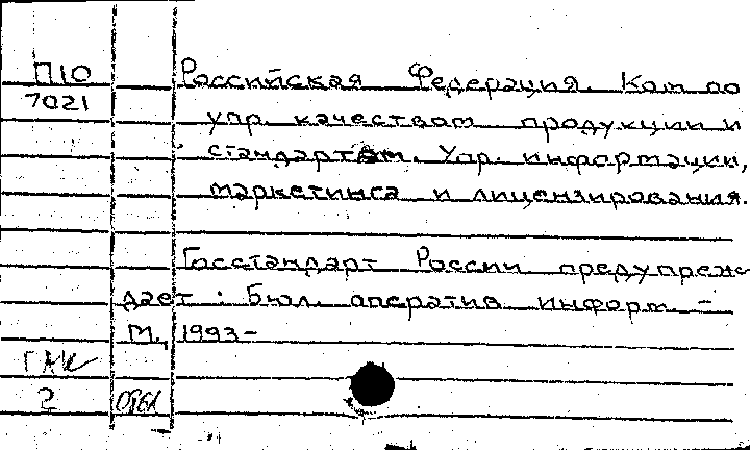 П10
7021
Российская Федерация. Ком по
упр. качеством продукции и
стандартам. Упр. информации,
маркетинга и лицензирования.
Госстандарт России предупреж-
дает : Бюл. оператив информ. –
М., 1993–
ГАК
2